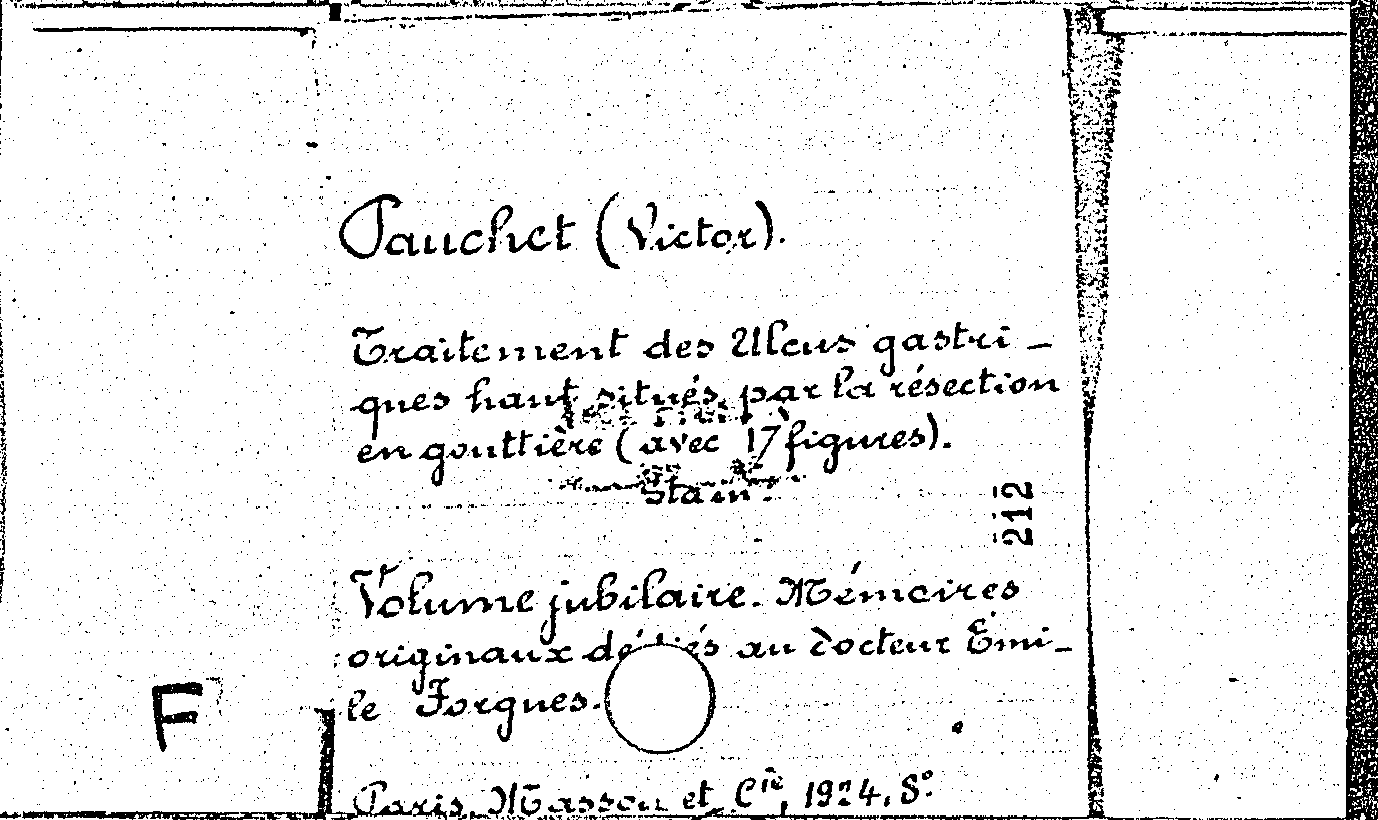 Pauchet (Victor).
Traitement des Ulcus gastri_
ques haut situés, par la résection
en gouttière (avec 17 figures).
Slain.
212
Volume jubilaire. Mémoires
originaux dédiés au Docteur Émi_
le Forgues.
F
Paris, Masson et Cie, 1924, 8º